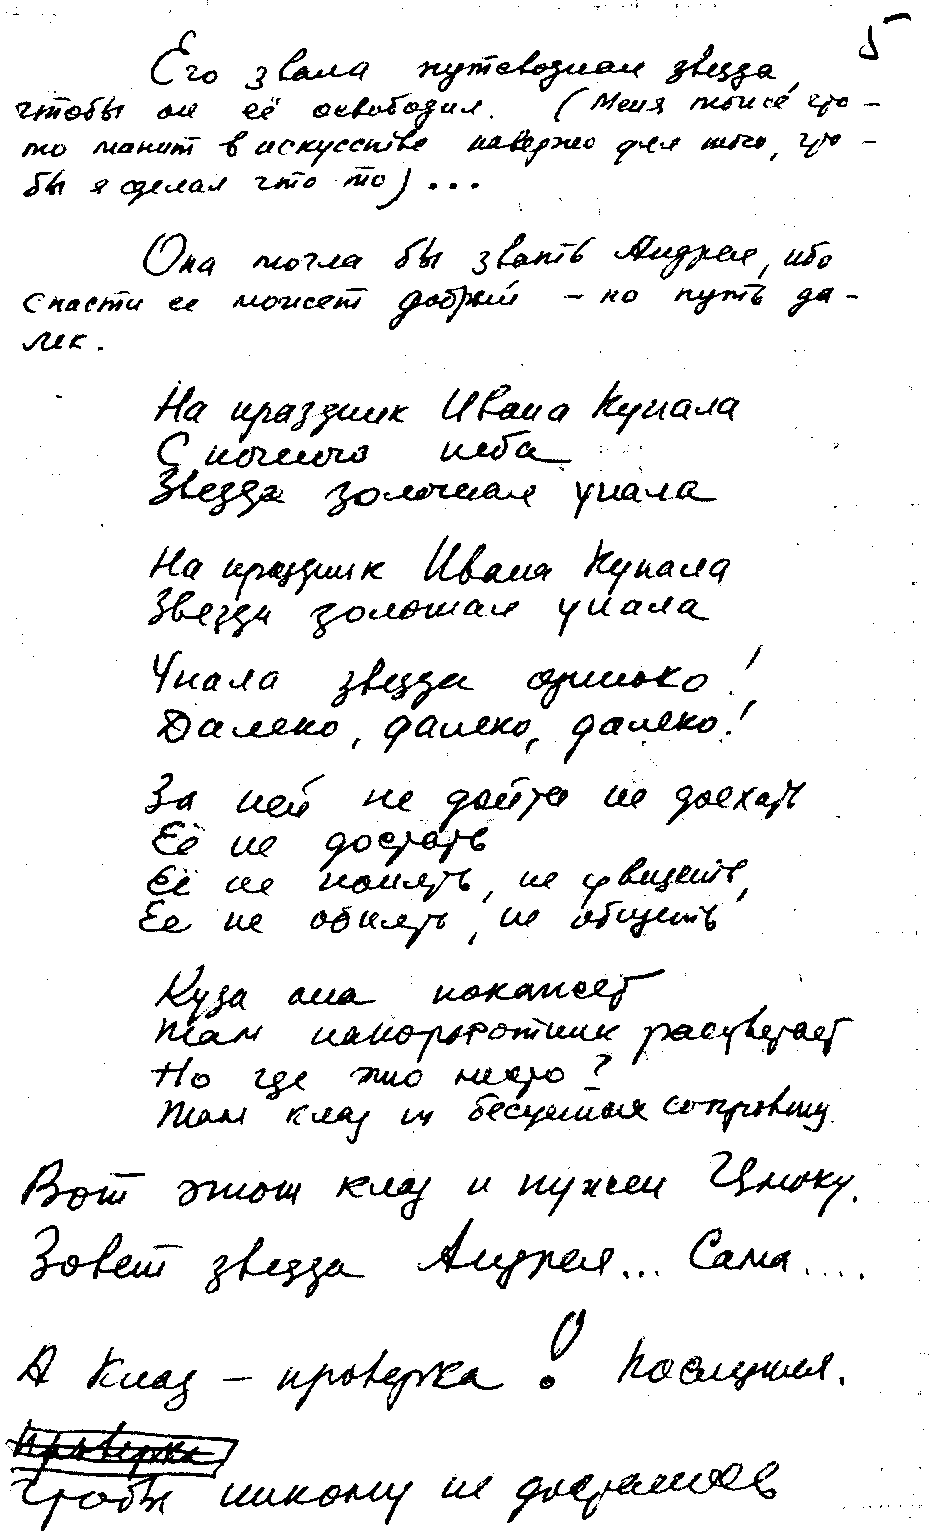 5
Его звала путеводная звезда,
чтобы он её освободил. (Меня тоже что-
то манит в искусстве наверно для того, что-
бы я сделал что то)...
Она могла бы звать Андрея, ибо
спасти ее может добрый - но путь да-
лек.
На праздник Ивана Купала
С ночного неба
Звезда золотая упала
На праздник Ивана Купала
Звезда золотая упала
Упала звезда одиноко!
Далеко, далеко, далеко!
За ней не дойти не доехать
Её не достать
Её не понять, не увидеть,
Ее не обнять, не обидеть
Куда она покажет
Там папоротник расцветает
Но где это место?
Там клад из бесценных сокровищ
Вот этот клад и нужен Цмоку.
Зовет звезда Андрея... Сама....
А Клад - проверка! Последняя.
Проверка
Чтобы никому не досталось